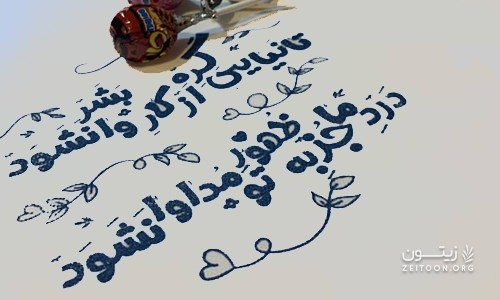 تا نیایی گره از کار بشر وا نشود
درد ما جز به ظهور تو مداوا نشود
زیتــون
ZEITOON.ORG